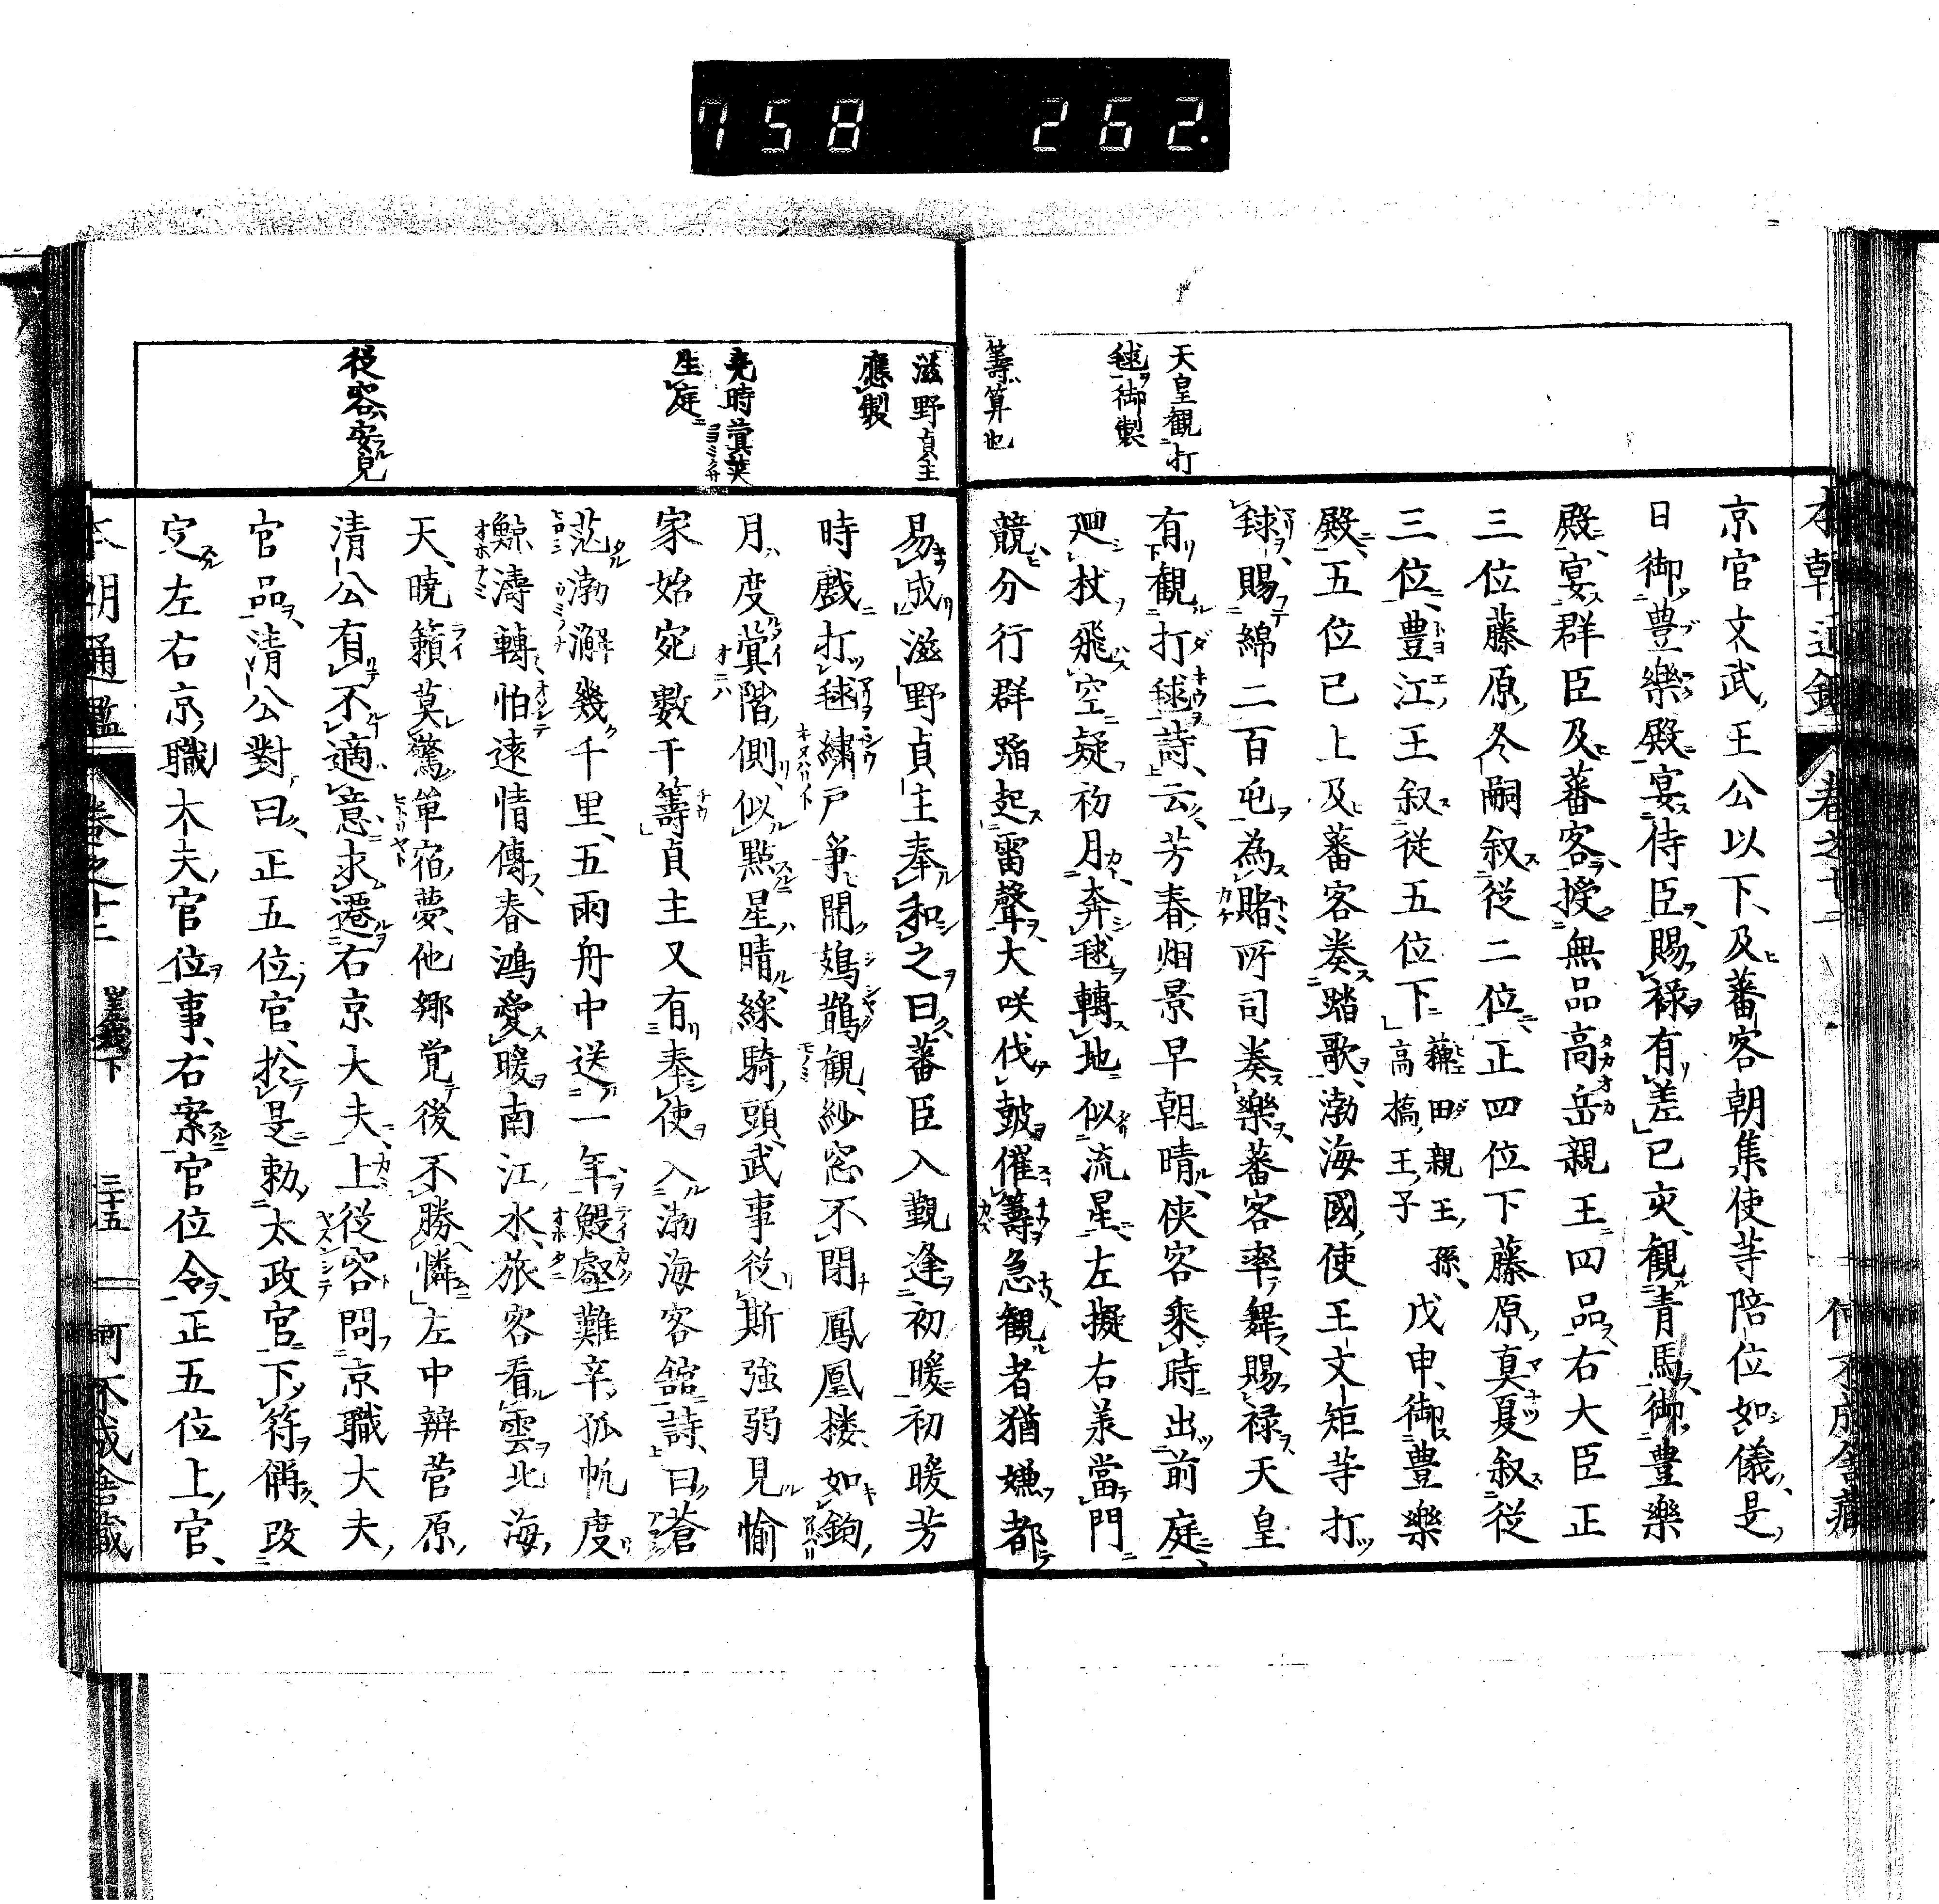 758 262.
天皇観打
毬御製
籌算也
京官文武王公以下及蕃客朝集使等陪位如儀是
日御豊樂殿宴侍臣賜禄有差已亥観青馬御豊樂
殿宴群臣及蕃客授無品高岳親王四品右大臣正
三位藤原冬嗣叙従二位正四位下藤原真夏叙従
三位豊江王叙従五位下蕪田親王孫高橋王子戊申御豊樂
殿五位已上及蕃客奏踏歌渤海國使王文矩等打
毬賜綿二百屯為賭所司奏樂蕃客率舞賜禄天皇
有観打毬詩云芳春烟景早朝晴侠客乘時出前庭
廻杖飛空疑初月奔毬轉地似流星左擬右承當門
競分行群踏起雷聲大咲伐鼓催籌急観者猶嫌都
滋野貞主
應製
堯時蓂莢
生庭
従容安皃
易成滋野貞主奉和之曰蕃臣入觀逢初暖初暖芳
時戯打毬繍戸爭開鳷鵲観紗窓不閉鳳凰楼如鉤
月度蓂階側似點星晴綵騎頭武事従斯強弱見愉
家始宛數千籌貞主又有奉使入渤海客舘詩曰蒼
茫渤澥幾千里五兩舟中送一年鰋壑難辛孤帆度
鯨濤轉怕遠情傳春鴻愛暖南江水旅客看雲北海
天暁籟莫驚單宿夢他郷覚後不勝憐左中辨菅原
清公有不適意求遷右京大夫上従容問京職大夫
官品清公對曰正五位官於是勅太政官下符俑改
定左右京職大夫官位事右案官位令正五位上官
本朝通鑑 卷之十二 三十五